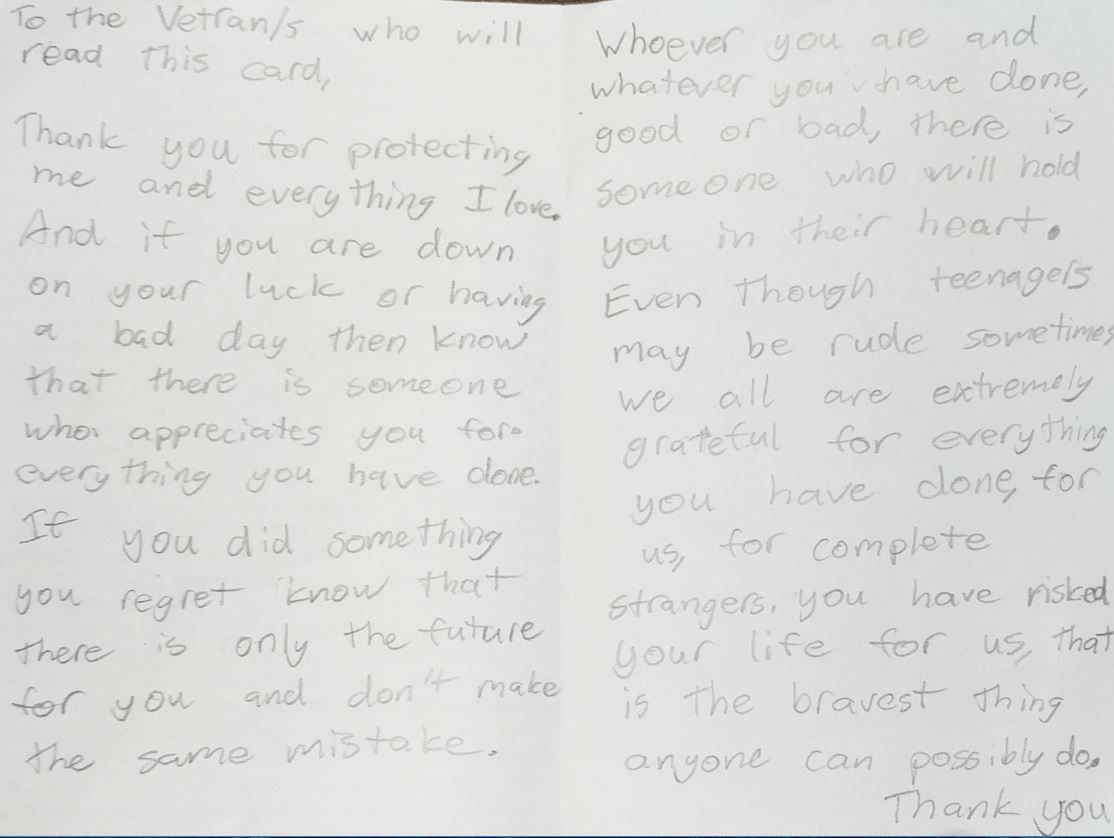 To the Vetran/s who will
read this card,
Thank you for protecting
me and everything I love.
And if you are down
on your luck or having
a bad day then know
that there is someone
who appreciates you for
everything you have done.
If you did something
you regret know that
there is only the future
for you and don't make
the same mistake.
Whoever you are and
whatever you have done,
good or bad, there is
someone who will hold
you in their heart.
Even though teenagers
may be rude sometimes
we all are extremely
grateful for everything
you have done, for
us, for complete
strangers. you have risked
your life for us, that
is the bravest thing
anyone can possibly do.
Thank you